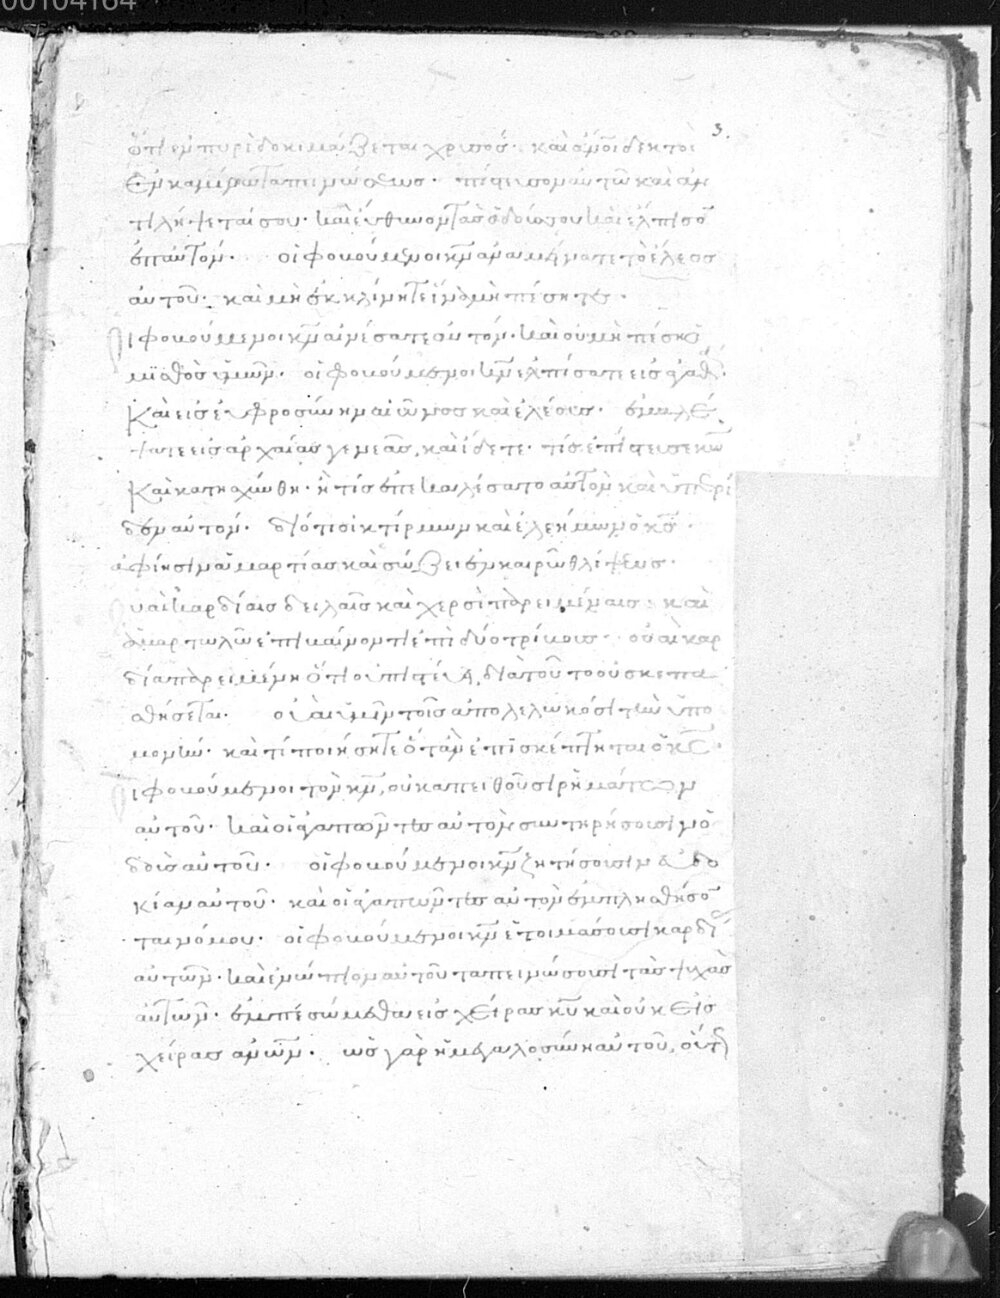 00104164
3.
ὅτι ἐν πυρὶ δοκιμάζεται χρυσός· καὶ ἄνοι δεκτοὶ
ἐν καμίνω ταπεινώσεως· πίστευσον αὐτῶ καὶ ἀν
τιλήψεταί σου· καὶ εὔθυνον τὰς ὁδούς σου καὶ ἔλπισον
ἐπ αὐτόν· οἱ φοβούμενοι κν ἀναμείνατε τὸ ἔλεος
αὐτοῦ· καὶ μὴ ἐκκλίνητε ἵνα μὴ πέσητε·
ι φοβούμενοι κν πιστεύσατε αὐτόν· καὶ οὐ μὴ πταίση
μϊσθὸς ὑμῶν· οἱ φοβούμενοι κν ἐλπίσατε εἰς ἀγαθά·
Καὶ εἰς εὐφροσύνην αἰῶνος καὶ ἐλέους· ἐμβλέ
ψατε εἰς ἀρχαίας γενεὰς, καὶ ἴδετε· τίς ἐπίστευσε κω
Καὶ κατησχύνθη· ἢ τίς ἐπεκαλέσατο αὐτὸν καὶ ὑπερεῖ
δεν αὐτόν· διότι οἰκτίρμων καὶ ἐλεήμων ὁ κς·
ἀφίησιν ἁμαρτίας καὶ σώζει ἐν καιρῶ θλίψεως·
υαὶ καρδίαις δειλαῖς καὶ χερσὶ παρειμέναις· καὶ
ἁμαρτωλῶ ἐπιβαίνοντι ἐπὶ δύο τρίβους· οὐαὶ καρ
δία παρειμένη ὅτι οὐ πιστεύει, διὰ τοῦτο οὐ σκεπα
σθήσεται· οὐαὶ ὑμῖν τοῖς ἀπολελωκόσι τὴν ὑπο
μονήν· καὶ τί ποιήσητε ὅταν ἐπισκέπτηται ὁ κς·
ι φοβούμενοι τὸν κν, οὐκ ἀπειθοῦσι ρημάτων
αὐτοῦ· καὶ οἱ ἀγαπῶντες αὐτὸν συντηρήσουσιν ὁ
δοὺς αὐτοῦ· οἱ φοβούμενοι κν ζητήσουσιν εὐδο
κίαν αὐτοῦ· καὶ οἱ ἀγαπῶντες αὐτὸν ἐμπλησθήσον
ται νόμου· οἱ φοβούμενοι κν ἑτοιμάσουσι καρδί
αὐτῶν· καὶ ἐνώπιον αὐτοῦ ταπεινώσουσι τὰς ψυχὰς
αὐτῶν· ἐμπεσώμεθα εἰς χεῖρας κυ καὶ οὐκ εἰς
χεῖρας ἀνων· ὡς γὰρ ἡ μεγαλοσύνη αὐτοῦ, οὕτω